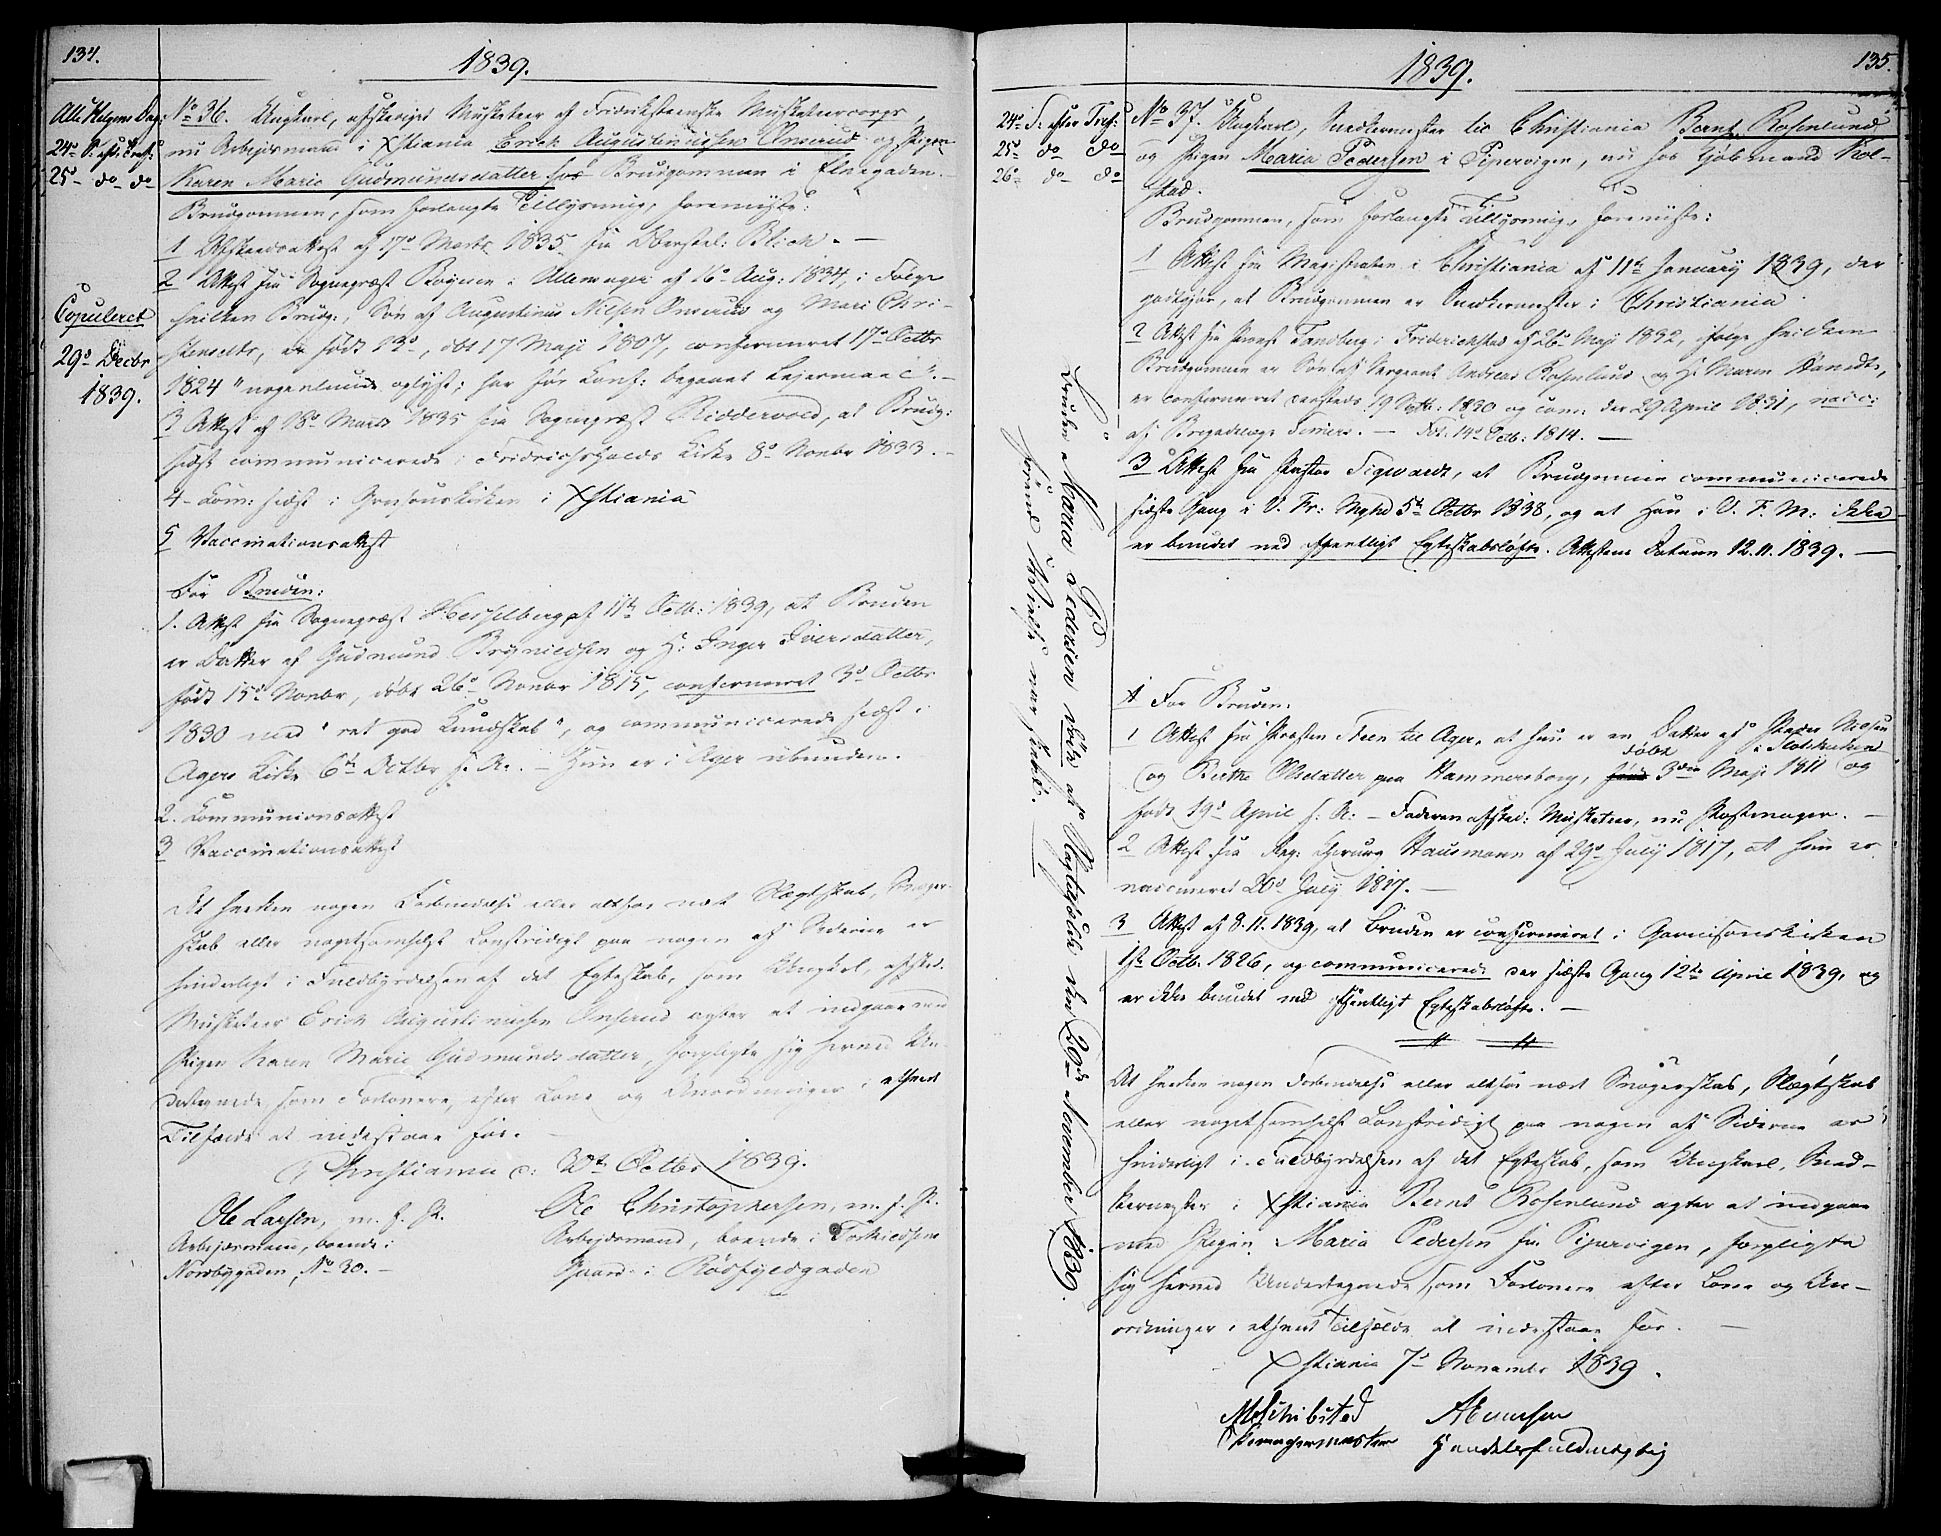 134.
1839.
Alle Helgens Dag:
24de S. eft: Tref:
25de do do
Copuleret
29de Decbr
1839.
No 36. Ungkarl, afskediget Musketeer af Fredriksteenske Musketeercorps,
nu Arbejdsmand i Xstiania Erich Augustinussen Onserud og Pigen
Karen Marie Gudmundsdatter hos Brudgommen i Elvegaden.
Brudgommen, som forlangte Tillysning, foreviiste:
1 Afskedsattest af 17de Marts 1835 fra Oberstl: Blich. —
2 Attest fra Sognepræst i Ullensager af 16de Aug: 1834, i Følge
hvilken Brudg:, Søn af Augustinus Nilsen Onserud og Mari Chri-
stensdtr, er født, dbt 17 Maji 1807, confirmeret 17de Octbr
1824 "nogenlunde oplyst; har før Conf: begaaet Lejermaal". —
3 Attest af 18de Marts 1835 fra Sognepræst Riddervold, at Brudg:
sidst communicerede i Fridrichshalds Kirke 8de Novbr 1833. —
4 Com: sidst i Garnisonskirken i Xstiania
5 Vaccinationsattest
For Bruden:
1. Attest fra Sognepræst Hesselberg af 11te Octb: 1839, at Bruden
er Datter af Gudmund Brynildsen og H: Inger Iversdatter,
født 15de Novbr, døbt 26de Novbr 1815, confirmeret 3de Octbr
1830 med "ret god Kundskab", og communicerede sidst i
Agers Kirke 6te Octbr h. A. — Hun er i Ager ubunden.
2. Communionsattest
3 Vaccinationsattest
At hverken nogen Forbindelse eller altfor nært Slægtskab, Svoger-
skab eller nogetsomhelst Lovstridigt paa nogen af Siderne er
hinderligt i Fuldbyrdelsen af det Egteskab, som Ungkarl, afsked.
Musketeer Erich Augustinussen Onserud agter at indgaae med
Pigen Karen Marie Gudmundsdatter, forpligte sig herved Un-
dertegnede som Forlovere, efter Love og Anordninger i ethvert
Tilfælde at indestaae for.
Christiania d: 30te Octbr 1839.
Ole Larsen, m. f. P.
Arbejdsmand, boende i
Nordbygaden, No 30. —
Ole Christophersen, m. f. P.
Arbejdsmand, boende i
Gaard i Rødfyldgaden
135.
1839.
24de S. efter Tref:
25de do do
26de do do
Bruden Maria Pedersen døde af den 20de November 1839,
forend Vielse var skeet.
No 37. Ungkarl, Snedkermester til Christiania Bernt Rosenlund
og Pigen Maria Pedersen i Pipervigen, nu hos Kjøbmand Kol-
stad.
Brudgommen, som forlangte Tillysning, foreviiste:
1 Attest fra Magistraten i Christiania af 11te January 1839, der
godtgjør, at Brudgommen er Snedkermester i Christiania
2 Attest fra Præst Tandberg i Friderichstad af 26de Maji 1832, ifølge hvilken
Brudgommen er Søn af Sergeant Andreas Rosenlund og H: Maren,
er confirmeret sammesteds 19 Sptb: 1830 og com: der 29 April 1831, vacc:
af Brigadelæge. — Fdt: 14de Octb: 1814. —
3 Attest fra Pastor Sigwardt, at Brudgommen communicerede
sidste Gang i V. Fr: Mghd 5te Octbr 1838, og at Han i V. F. M. ikke
er bundet ved offentligt Egteskabsløfte. Attestens Datum 12.11.1839. —
A For Bruden:
1 Attest fra Præsten Steen til Ager, at hun er en Datter af Peder Nielsen
og Berthe Olsdatter paa Hammersborg, døbt 3die Maji 1811 i Slotskirken og
født 19de April s. A: — Faderen afsked: Musketeer, nu Skomager. —
2 Attest fra Reg: Chirurg Hausmann af 29de July 1817, at hun er
vaccineret 20de July 1817. —
3 Attest af 8.11.1839, at Bruden er confirmeret i Garnisonskirken
1ste Octb. 1826, og communicerede der sidste Gang 12te April 1839, og
er ikke bundet ved offentligt Egteskabsløfte. —
At hverken nogen Forbindelse eller altfor nært Svogerskab, Slægtskab
eller nogetsomhelst Lovstridigt paa nogen af Siderne er
hinderligt i Fuldbyrdelsen af det Egteskab, som Ungkarl, Sned-
kermester i Xstiania Bernt Rosenlund agter at indgaae
med Pigen Maria Pedersen fra Pipervigen, forpligte
sig herved Undertegnede som Forlovere efter Love og An-
ordninger i ethvert Tilfælde at indestaae for. —
Xstiania 7de November 1839.
M Schibsted
AEvensen
Handelsfuldmægtig